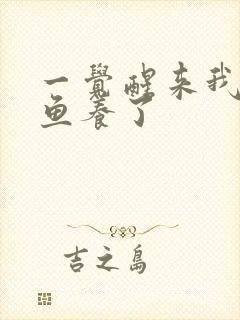 一覺醒來我
鱼養了
吉之島